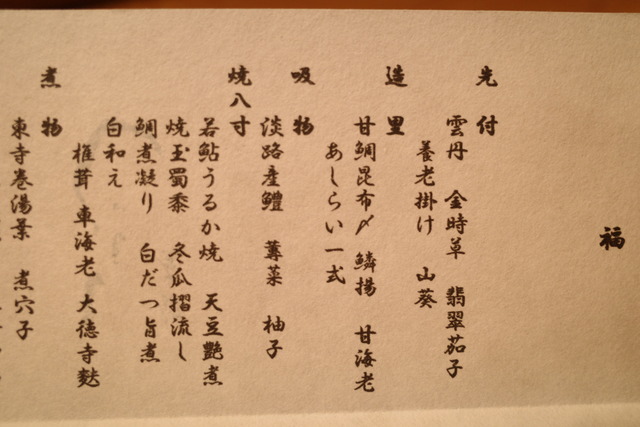 福
先付
雲丹 金時草 翡翠茄子
養老掛け 山葵
造里
甘鯛昆布〆 鱗揚 甘海老
あしらい一式
吸物
淡路産鱧 蓴菜 柚子
焼八寸
若鮎うるか焼 天豆艶煮
焼玉蜀黍 冬瓜摺流し
鯛煮凝り 白だつ旨煮
白和え
椎茸 車海老 大徳寺麩
煮物
東寺巻湯葉 煮穴子